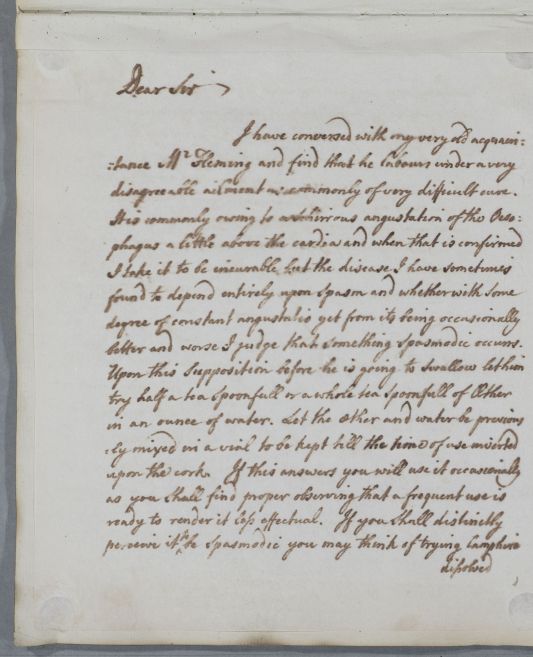 Dear Sir
I have conversed with my very old acquain:
:tance Mr Fleming and find that he labours under a very
disagreeable ailment & commonly of very difficult cure.
It is commonly owing to a schirrous angustation of the Oeso:
phagus a little above the cardia and when that is confirmed
I take it to be incurable but the disease I have sometimes
found to depend entirely upon spasm and whether with some
degree of constant angustatio yet from its being occasionally
better and worse I judge that something spasmodic occurs.
Upon this Supposition before he is going to swallow let him
try half a tea Spoonfull or a whole tea spoonfull of Æther
in an ounce of water. Let the æther and water be previous
:ly mixed in a vial to be kept till the time of use inverted
upon the cork. If this answers you will use it occasionally
as you shall find proper observing that a frequent use is
ready to render it less effectual. If you shall distinctly
perceive it to be spasmodic you may think of trying Camphire
dissolved